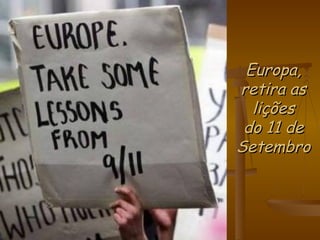 EUROPE.
TAKE SOME
LESSONS
FROM
9/11
Europa,
retira as
lições
do 11 de
Setembro